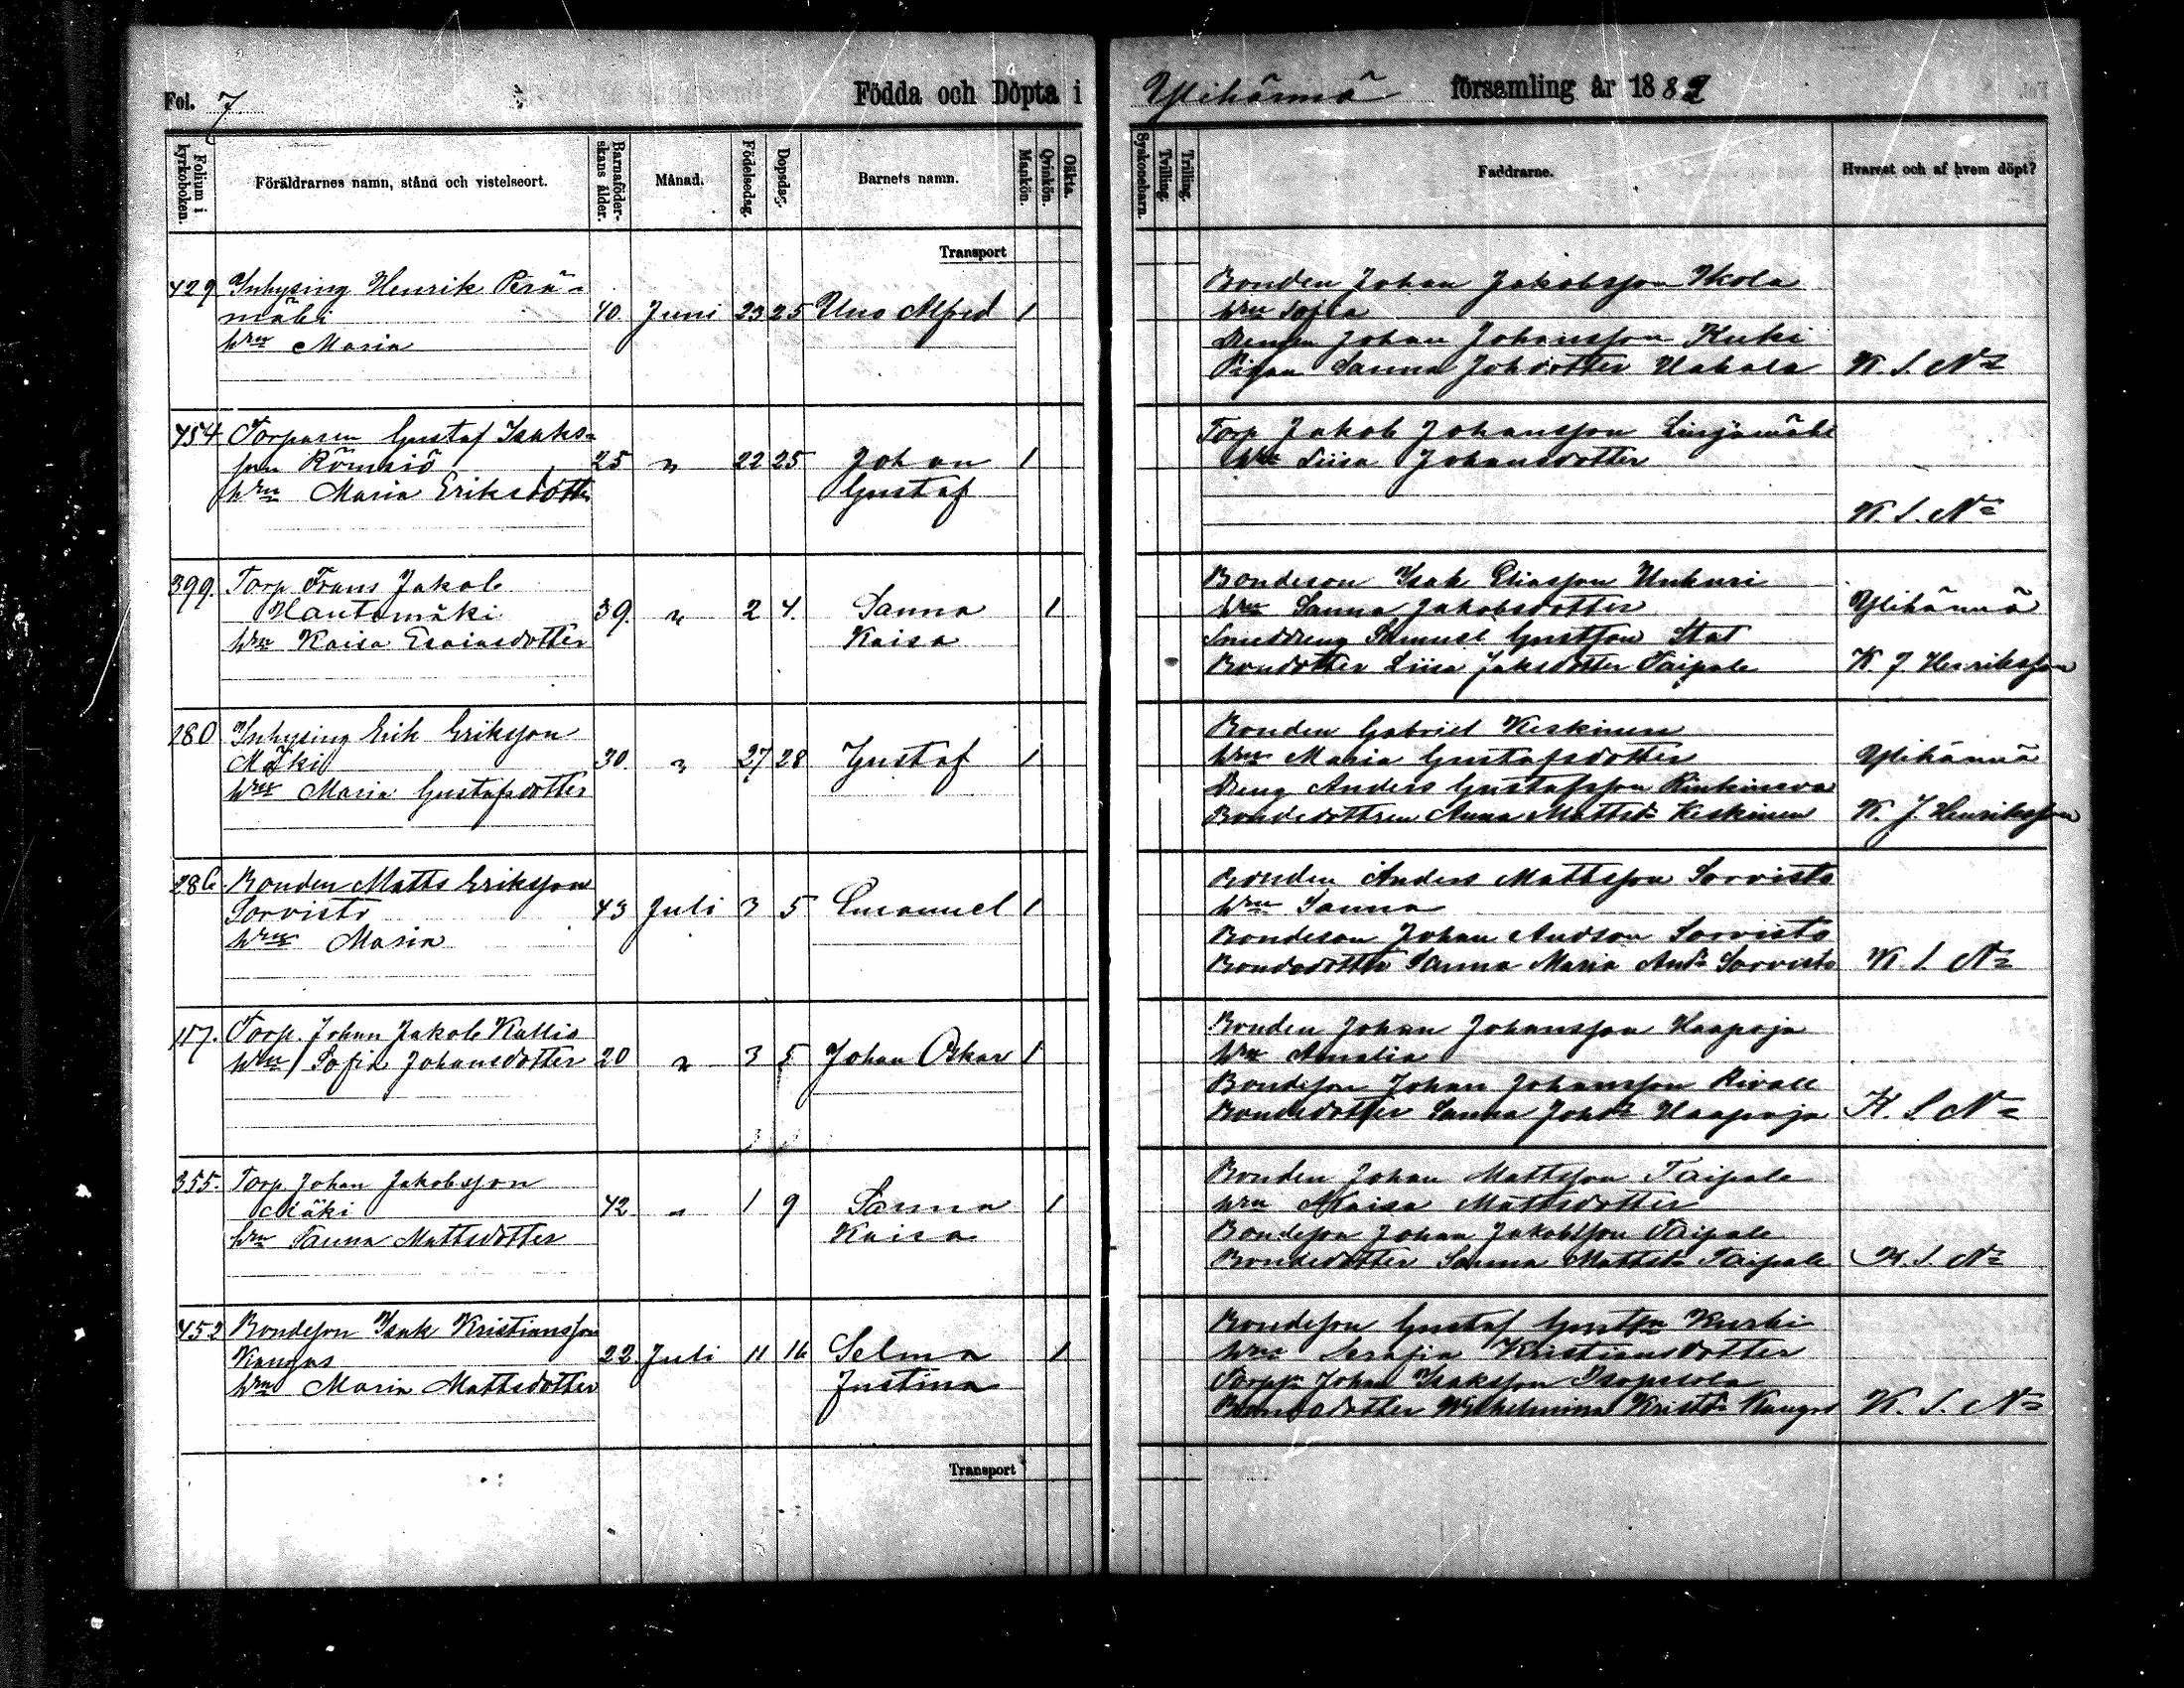 Fol. 7
Födda och Döpta i Ylihärmä församling år 1882
Folium i kyrkoboken.
Föräldrarnes namn, stånd och vistelseort.
Barnaföderskans ålder.
Månad.
Födelsedag.
Dopsdag.
Barnets namn.
Mankön.
Qvinkön.
Oäkta.
Syskonebarn.
Tvilling.
Trilling.
Faddrarne.
Hvarest och af hvem döpt?
Transport
429 Inhysing Henrik Perä-
mäki 40. Juni 23 25 Uno Alfred 1
hru Maria
Bonden Johan Jakobsson Ikola
hru Sofia
Drengen Johan Johansson Kuki
Pigan Sanna Johdotter Uakala K. S. Na
454 Torparen Gustaf Isaks-
son Römriö 25 " 22 25 Johan 1
hru Maria Eriksdotter Gustaf
Torp Jakob Johansson Linjamäki
hru Liisa Johansdotter
K. S. Na
399. Torp Frans Jakob
Hautamäki 39. " 2 4. Sanna 1
hru Kaisa Esaiasdotter Kaisa
Bondeson Isak Eliasson Unkuri
hru Sanna Jakobsdotter Ylihärmä
Smeddreng Samuel Gustsson Stat
Bondotter Liisa Jaksdotter Taipale K. J. Henriksson
280 Inhysing Erik Eriksson
Mäki 30. " 27 28 Gustaf 1
hru Maria Gustafsdotter
Bonden Gabriel Keskinen
hru Maria Gustafsdotter Ylihärmä
Dreng Anders Gustafsson
Bondedottren Anna Mattsd. Keskinen K. J. Henriksson
286. Bonden Matts Eriksson
Sorvisto 43 Juli 3 5 Emanuel 1
hru Maria
Bonden Anders Mattsson Sorvisto
hru Sanna
Bondeson Johan Andson Sorvisto
Bondedotter Sanna Maria Andr Sorvisto K. S. Na
117. Torp. Johan Jakob Kallio
hru Sofia Johansdotter 20 " 3 5 Johan Oskar 1
Bonden Johan Johansson Haapoja
hru Amalia
Bondeson Johan Johansson Kivall
Bondedotter Sanna Johdr Haapoja K. S. Na
355. Torp Johan Jakobsson
Mäki 42. " 1 9 Sanna 1
hru Sanna Mattsdotter Kaisa
Bonden Johan Mattsson Taipale
hru Kaisa Mattsdotter
Bondeson Johan Jakobsson Taipale
Bondedotter Sanna Mattsdr Taipale K. S. Na
452 Bondeson Isak Kristiansson
Kangas 22. Juli 11 16 Selma 1
hru Maria Mattsdotter Justina
Bondeson Gustaf Gustsn Kurki
hru Serafia Kristiansdotter
Torpsn Johan Isaksson
Bondadotter Wilhelmina Kristdr Kangas K. S. Na
Transport